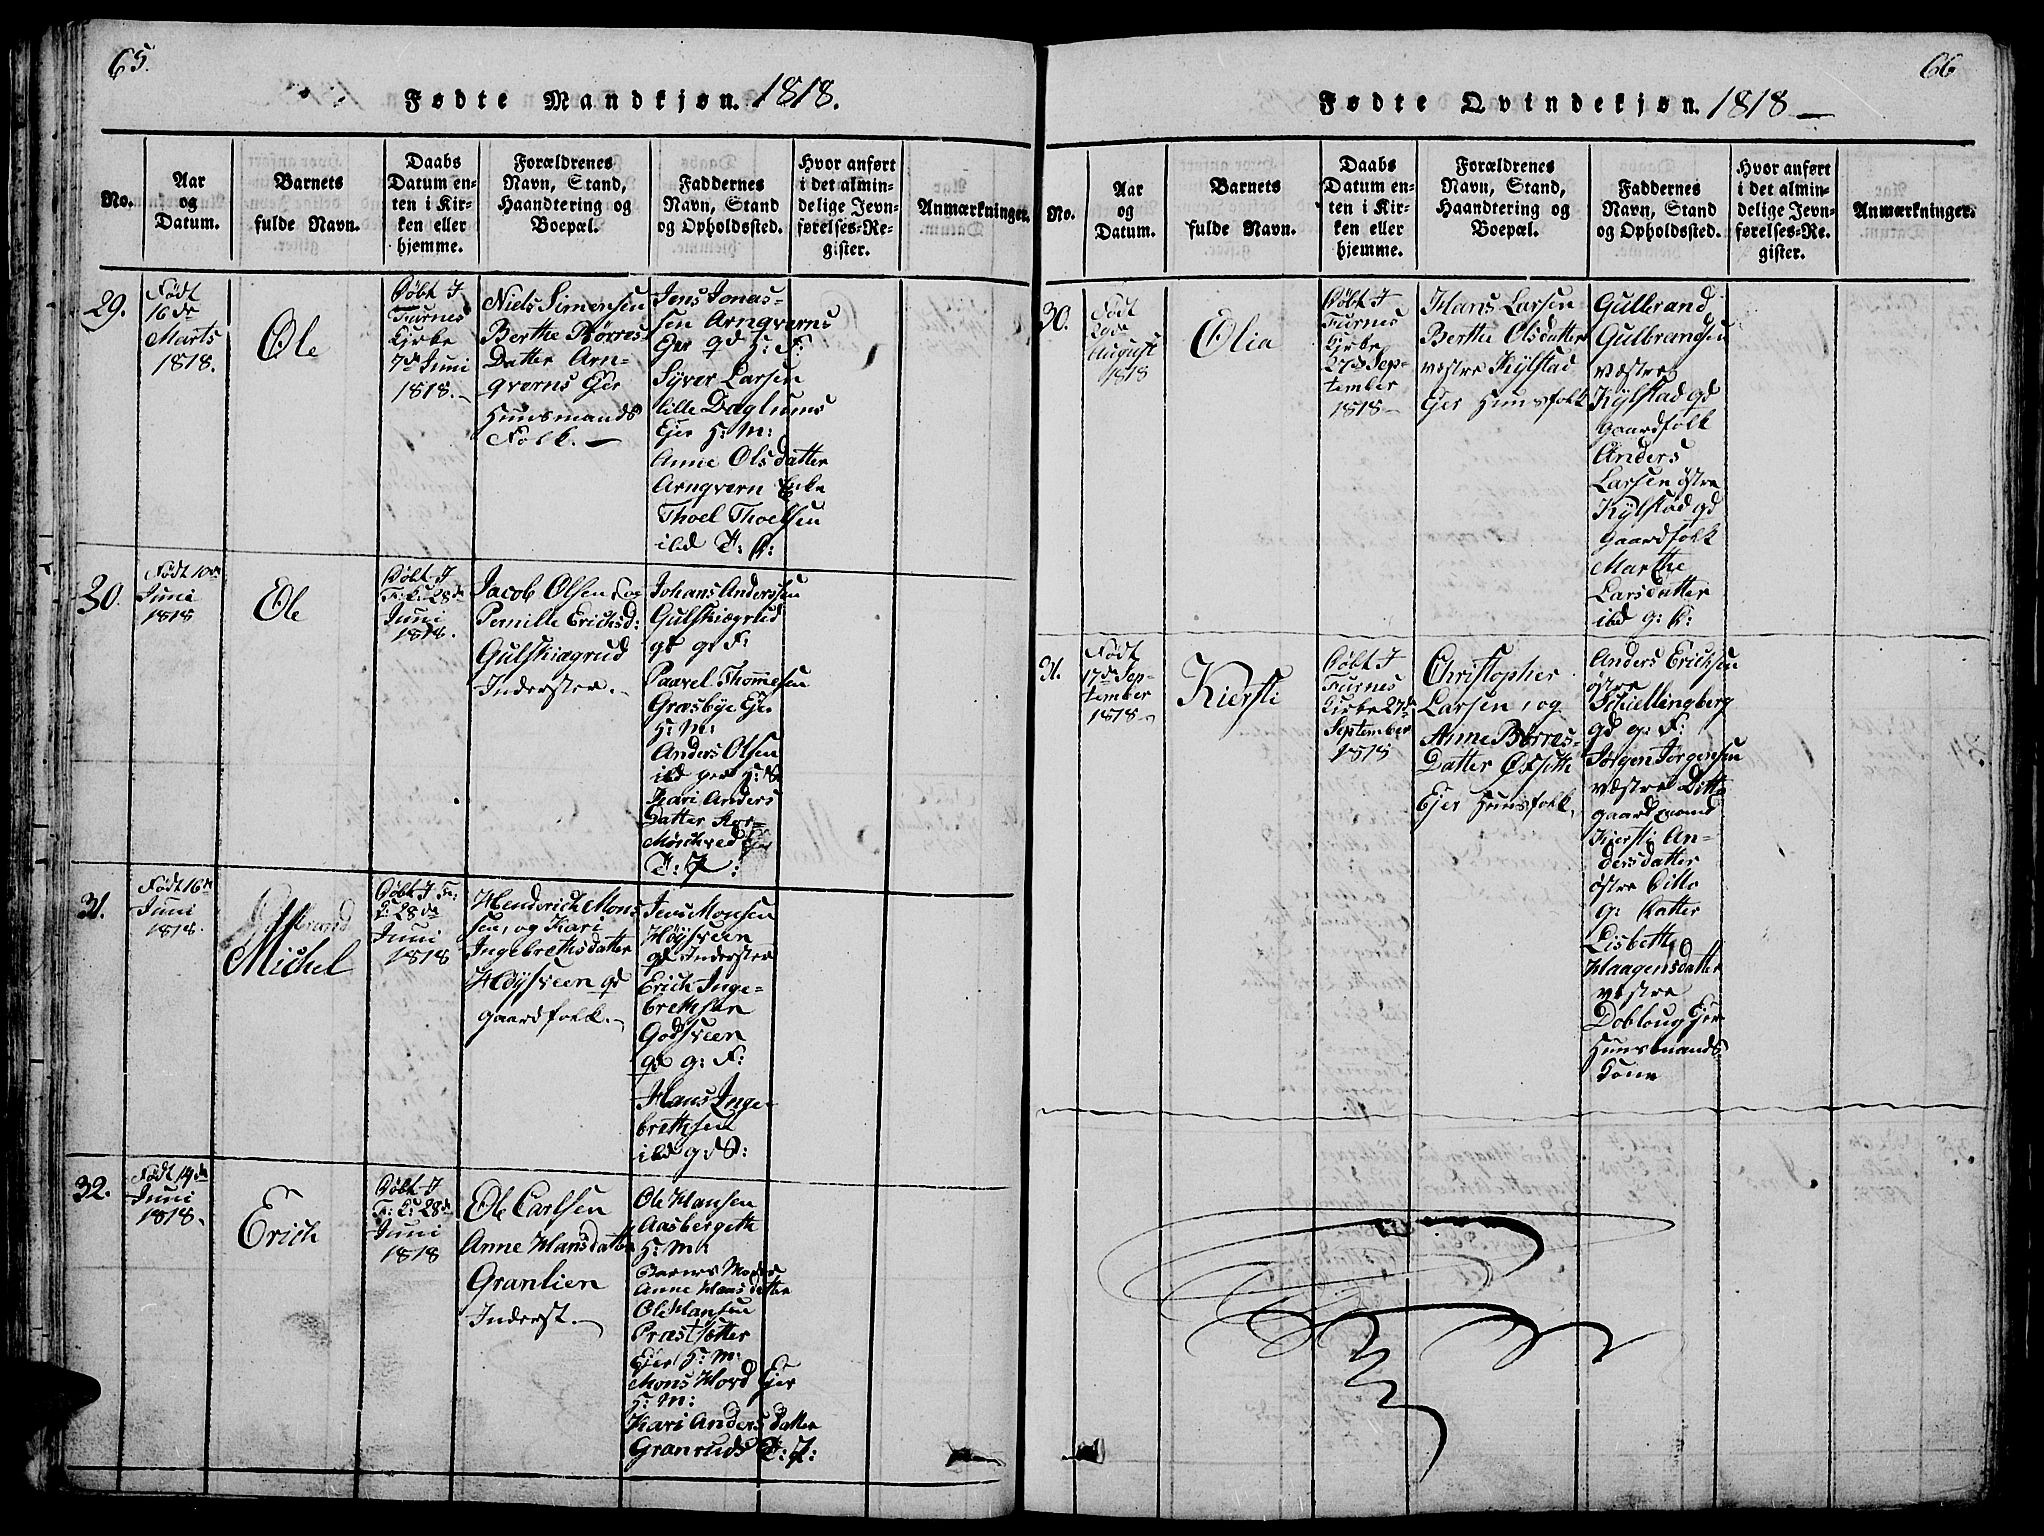 65.
Fødte Mandkjøn. 1818.
No.
Aar
og
Datum.
Barnets
fulde Navn.
Daabs
Datum en-
ten i Kir-
ken eller
hjemme.
Forældrenes
Navn, Stand,
Haandtering og
Boepæl.
Faddernes
Navn, Stand
og Opholdssted.
Hvor anført
i det almin-
delige Jevn-
førelses-Re-
gister.
Anmærkninger.
29.
Født
16de
Marts
1818.
Ole
Døbt I
Furnes
Kirke
7de Juni
1818.
Niels Simensen
Berthe Børres
Datter Arn-
qværns Eier
Huusmands
Folk.
Jens Jonas-
sen Arnqværns
Ejer gd H: F:
Syver Larsen
lille Daglums
Ejer H: M:
Anne Olsdatter
Arnqværn Enke
Thoel Thoelsen
ibd
30.
Født 10de
Juni
1818
Ole
Døbt I
F: K: 28de
Juni
1818.
Jacob Olsen og
Pernille Ericksd:
Gulskiægrud
Inderster.
Johans Anderssen
Gulskiægrud
gd g: F:
Paavel Thommesen
Græsbye Eje
H: M:
Anders Olsen
ibd
Kari Anders
Datter Kor-
Mørchved Eier
31.
Født 16de
Juni
1818.
Michel
Døbt I F:
K: 28de
Juni
1818
Henderich Mons
sen, og Kari
Ingebrethsdatter
Høysveen gd
gaardfolk.
Jens Monsen
Høysveen
gd Inderster
Erich Inge-
brethsen
Godsveen
gd g: F:
Hans Inge-
brethsen
ibd g d S:
32.
Født 14de
Juni
1818.
Erich
Døbt I
F: K: 28de
Juni
1818
Ole Carlsen
Anne Hansdatter
Granlien
Inderst.
Ole Hansen
Aasbergeth
H: M:
Barnes Moder
Anne Hansdatter
Ole Hansen
Præstsætter
Ejer H: M:
Mons Hord Ejer
H: M:
Kari Anders Datter
Granruds
66
Fødte Qvindekjøn. 1818
No.
Aar
og
Datum.
Barnets
fulde Navn.
Daabs
Datum en-
ten i Kir-
ken eller
hjemme.
Forældrenes
Navn, Stand,
Haandtering og
Boepæl.
Faddernes
Navn, Stand
og Opholdssted.
Hvor anført
i det almin-
delige Jevn-
førelses-Re-
gister.
Anmærkninger.
30.
Født
29de
August
1818
Olia
Døbt I
Furnes
Kirke
27de Sep-
tember
1818
Hans Larsen
Berthe Olsdatter
væstre Kylstad
Ejer Huusfolk
Gulbrand
Gulbrandsen
væstre
Kylstad gd
gaardfolk
Anders
Larsen østre
Kylstad gd
gaardfolk
Marthe
Larsdatter
ibd
31.
Født
17de Sep-
tember
1818
Kiersti
Døbt I
Furnes
Kirke 27de
September
1818
Christopher
Larsen, og
Anne Børres-
Datter
Ejer Huusfolk.
Anders Erichsen
østre
Schiellingberg
gd g: F:
Jørgen Jørgensen
væstre Ditto
gaardmand
Kiersti An-
dersdatter
østre Ditto
g: Datter
Lisbeth
Haagensdatter
væstre
Dobloug Ejer
Huusmands
Kone